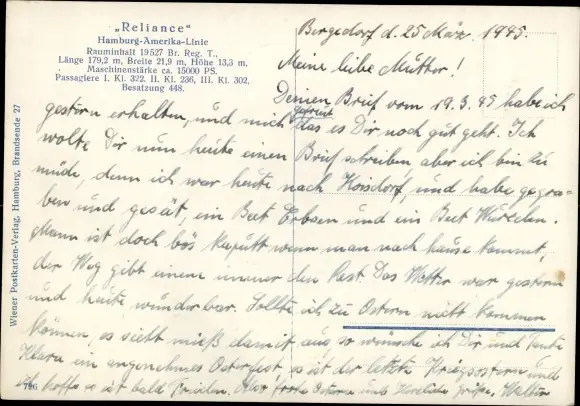 „Reliance"
Hamburg-Amerika-Linie
Rauminhalt 19527 Br. Reg. T.,
Länge 179,2 m, Breite 21,9 m, Höhe 13,3 m,
Maschinenstärke ca. 15000 PS.
Passagiere I. Kl. 322, II. Kl. 236, III. Kl. 302,
Besatzung 448.
Wiener Postkarten-Verlag, Hamburg, Brandsende 27
Bergedorf d. 25 März 1945.
Meine liebe Mutter!
Deinen Brief vom 19.3.45 habe ich
gestern erhalten, und mich gefreut das es Dir noch gut geht. Ich
wolte Dir nun heute einen Brief schreiben aber ich bin zu
müde, denn ich war heute nach und habe gegra-
ben und gesät, ein Beet Erbsen und ein Beet Wurzeln.
Mann ist doch bös kaputt wenn man nach hause kommt,
der Weg gibt einem immer den Rest. Das Wetter war gestern
und heute wunderbar. Sollte ich zu Ostern nicht kommen
können, es sieht mieß damit aus, so wünsche ich Dir und Tante
Klara ein angenehmes Osterfest, es ist der letzte Kriegsostern und
ich hoffe es ist bald Frieden. Also frohe Ostern und Herzliche Grüße, Walter
726